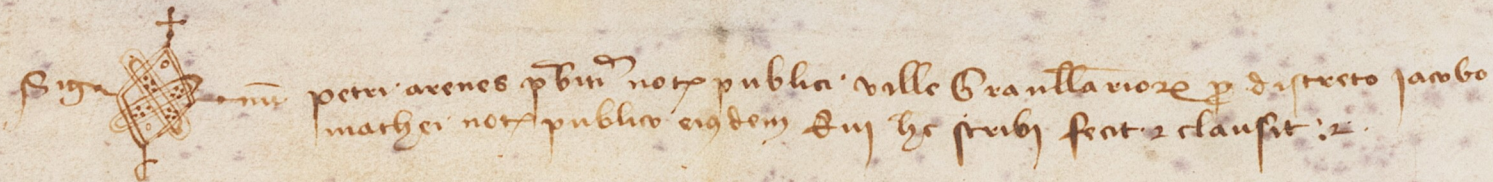 Sig num petri arenes p̄biti notꝝ publici ville Granullarioꝝ ꝑ discreto Jacobo
mathei notꝝ publico eiꝰdem Qui hc scribi fecit ⁊ clausit